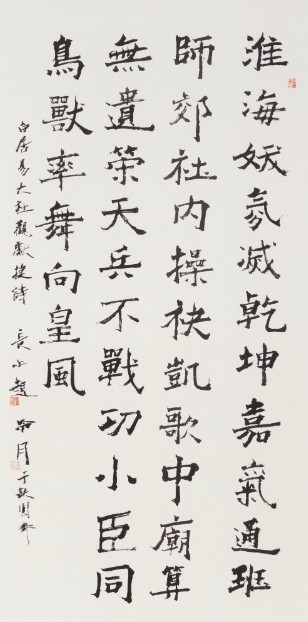 淮海妖氛滅乾坤嘉氣通班
師郊社內操袂凱歌中廟算
無遺策天兵不戰功小臣同
鳥獸率舞向皇風
白居易大社觀獻捷詩